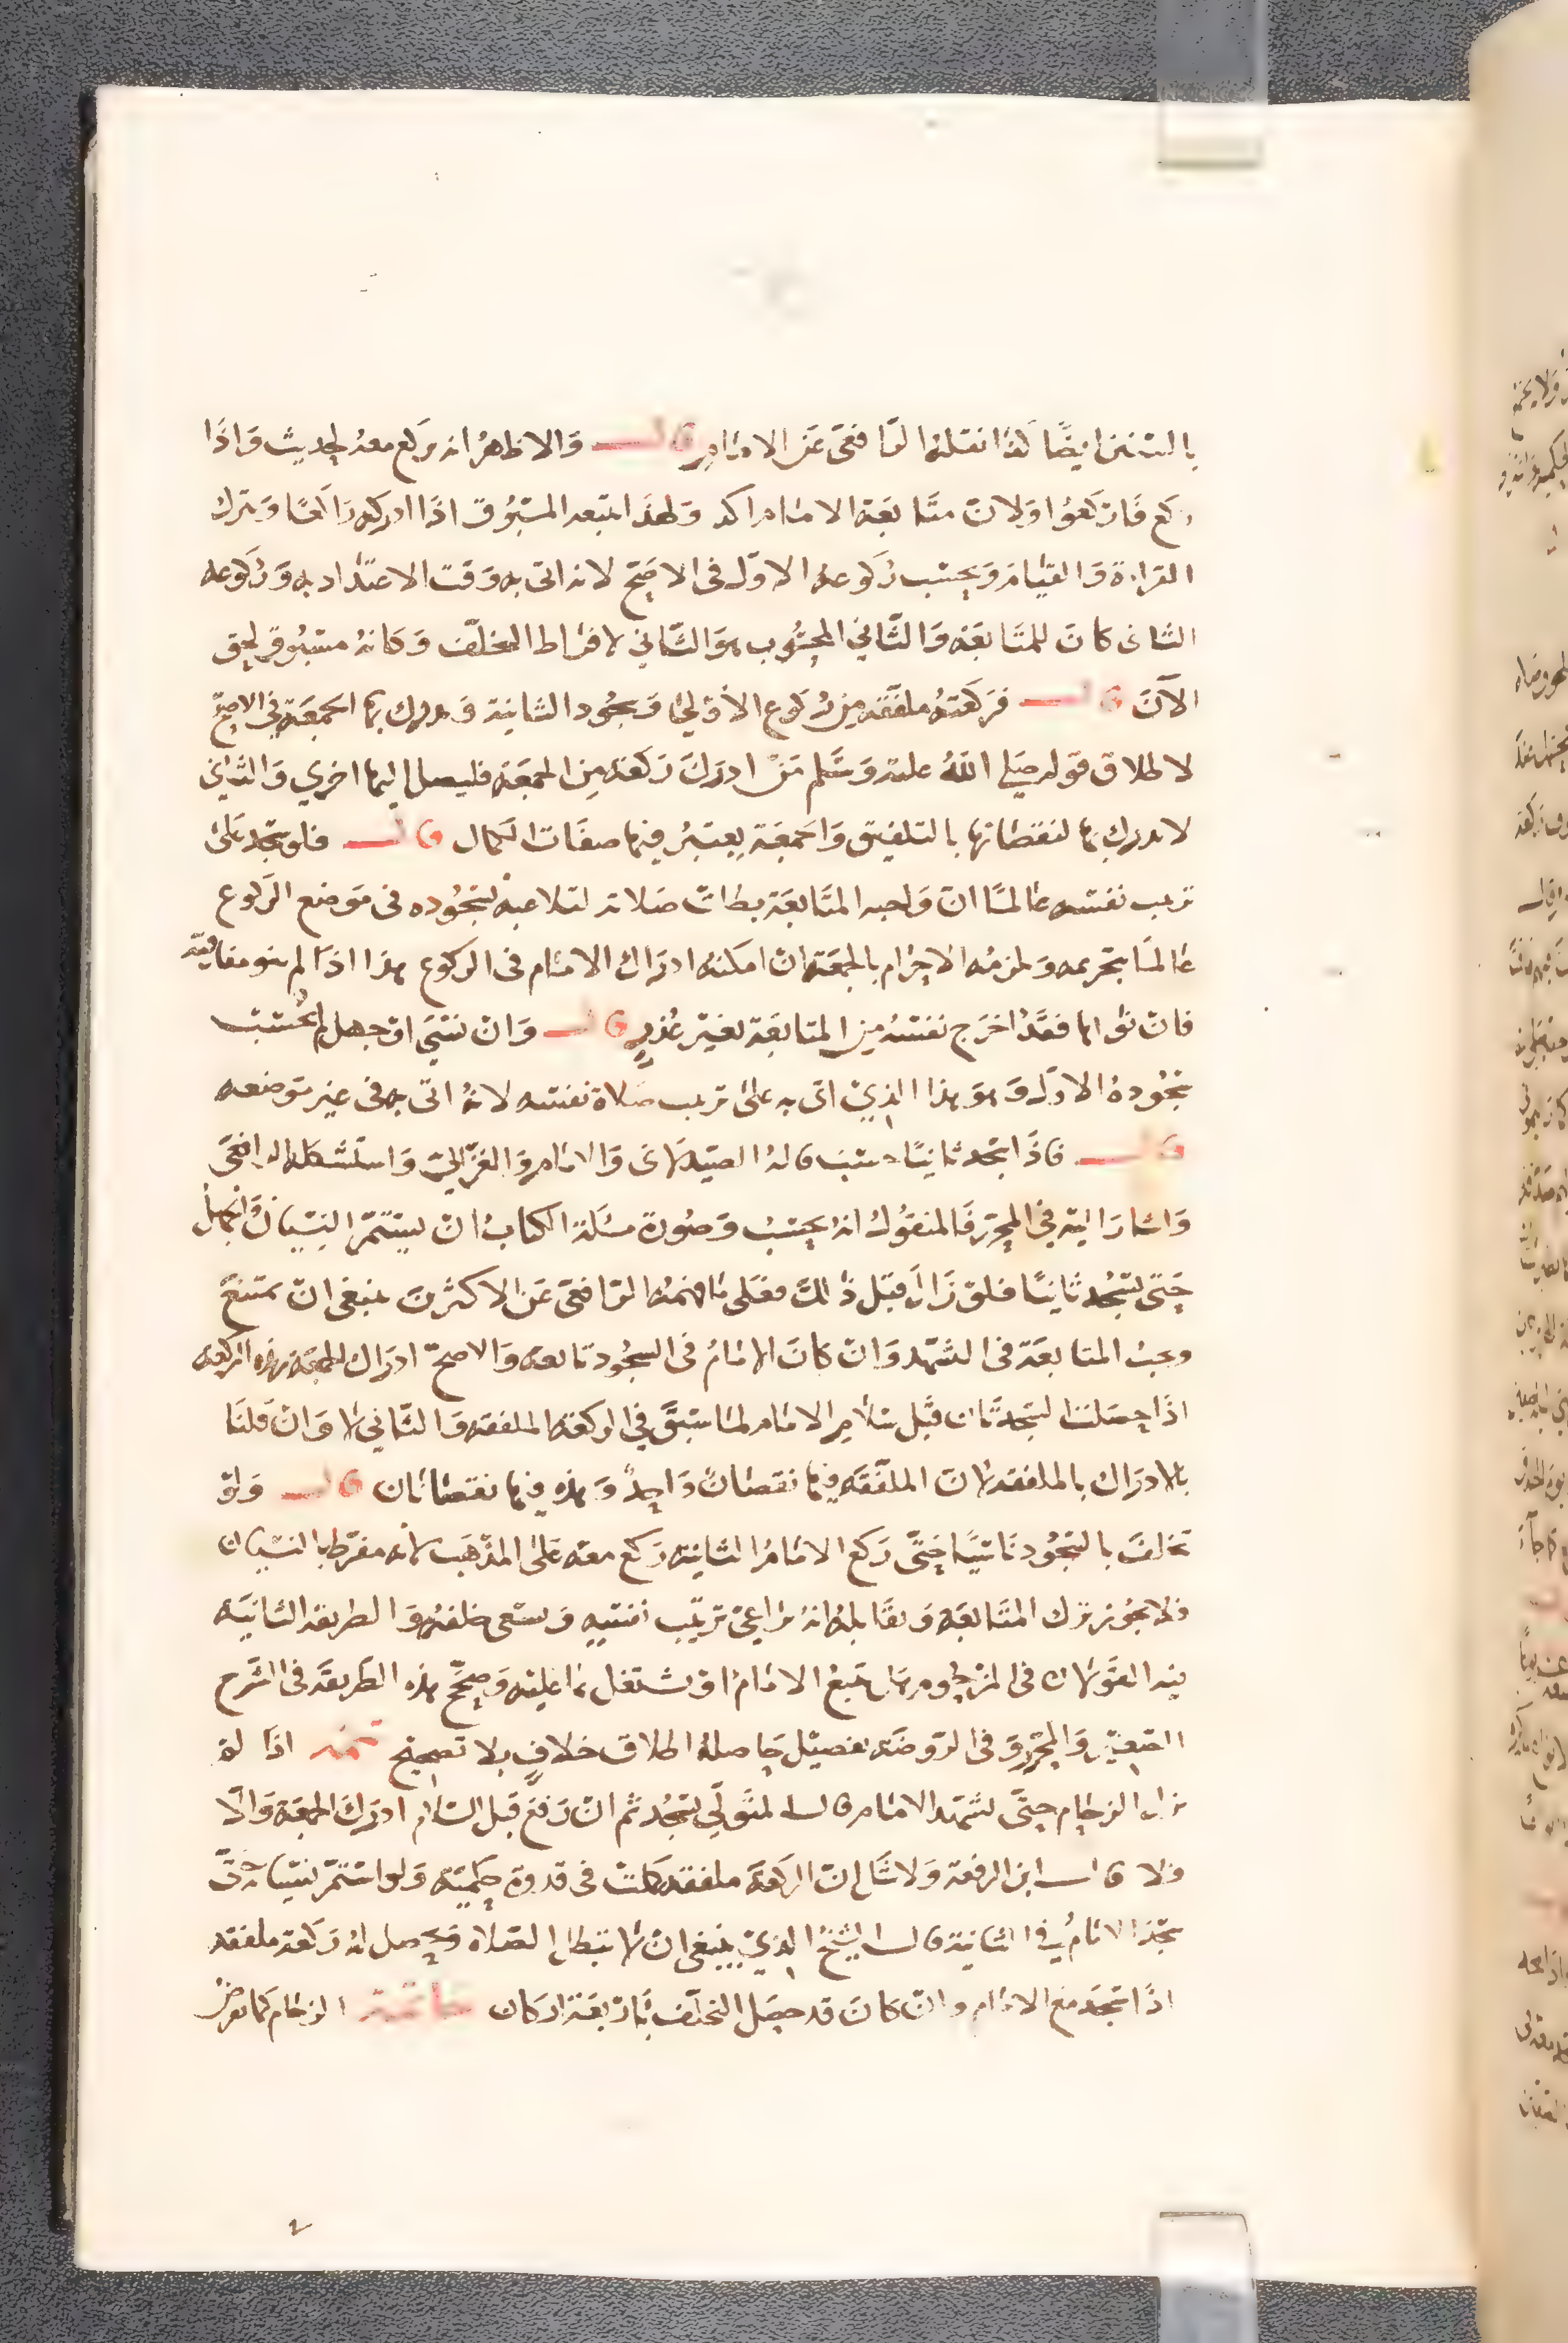 بالسنن ايضًا كذا نقله الرافعى عَن الامام قال والاظهر انه يركع معه لحديث واذا
ركع فَاركعوا وَلانّ متابعَة الامام اكد وَلهذا يتبعه المسبُوق اذا ادركه راكعًا وَيترك
القراءة وَالقيام وَيحسب ركوعه الاوّل فى الاصَحّ لانه اتى به وَقت الاعتداد به وَركوعه
الثانى كان للمتَابعَة وَالثّاني المحسُوب هوَ الثّاني لافراط التخلّف وَكانهُ مسبُوق لحق
الآنَ قال فرَكعَتهُ ملفّقة من ركوع الأولى وَسجُود الثانية وَيدرك بها الجمعَة في الاصحّ
لاطلاق قوله صَلى اللهُ عليه وَسَلم مَنْ ادركَ رَكعَة مِن الجمعَة فليصل اليها اخري وَالثاني
لا يدرك بها لنقصانها بالتلفيق وَالجمعَة يعتبرُ فيها صفَات الكمال قال فلو سجد عَلى
ترتيب نفسه عالمًا انّ وَاجبه المتَابعَة بطلت صَلاته لتلاعبه بسجُوده فى مَوضع الركوع
عالمًا بتحريمه وَيلزمُه الاحرام بالجمعَة ان امكنهُ ادرَاك الامام فى الركوع هذا اذا لم ينو مفارقته
فان نواها فقدْ اخرَج نفسَهُ من المتابعَة بغير عُذرٍ قال وَان نسي اوْ جهل لم يُحسَبْ
سجُودهُ الاوّل وَهوَ هذا الذيْ اتى به على ترتيب صَلاة نفسه لانهُ اتى به فى غير مَوضعه
قال فاذا سجد ثانيًا حسبَ قالهُ الصّيدلانى وَالامام وَالغزالى وَاستشكله الرافعى
وَاشارَ اليه في المحرّر فَالمنقُول انهُ يحسبُ وَصُورة مسئلة الكتاب ان يستمرّ النسيَان وَالجهل
حَتى يسجُد ثانيًا فلوْ زَال قبل ذلك فعَلى مَا فهمهُ الرّافعى عَن الاكثرين ينبغى ان تمتنعَ
وَيجبُ المتَابعَة فى التشهّد وَان كانَ الامَامُ فى السجُود تابعه وَالاصحّ ادرَاك الجمعَة بهذه الركعة
اذا حصَلت السّجدَتان قبل سَلام الامام لما سَبقَ في الركعة الملفقة وَالثّاني لا وَان قلنَا
بالادرَاك بالملفقة لانّ الملفّقة فيها نقصَانٌ وَاحدٌ وَهذه فيها نقصَانَان قال وَلوْ
تخلفَ بالسّجُود نَاسيًا حَتّى رَكع الامامُ الثانية رَكعَ معَه عَلى المذهب لأنه مفرّط بالنسيان
فلا يجوز ترك المتَابعَة وَيقَابلهُ انهُ يرَاعيْ ترتيبَ نفسِه وَيسعى خلفهُ وَالطريقة الثانيَة
فيه القولان فى المزحُوم هَل يتبعُ الامام اوْ يشتغل بما عليْه وَصحّحَ هذه الطريقة فى الشّرح
الصّغير وَالمحرّر وَفى الرّوضَة تفصيْل حَاصلهُ اطلاق خلافٍ بلا تصحيح تتمه اذا لم
يزل الزحام حتّى تشهد الامام قال المتولّي يسجُد ثم انْ رَفع قبل السّلام ادرَكَ الجمعَة وَالّا
فلا قال ابن الرفعة وَلا شَك انّ الركعَة ملفقة كملتْ فى قدوة حكميّة وَلو استمرّ نسيَانه حتّى
سجدَ الامامُ في الثانية قال الشيخُ الذيْ ينبغى ان لا تبطل الصّلاة وَيحصل لهُ ركعَة ملفقة
اذا سَجَد معَ الامام وان كانَ قد حصَل التخلّف بأربَعة اركان خاتمة الزحام كما يفرض